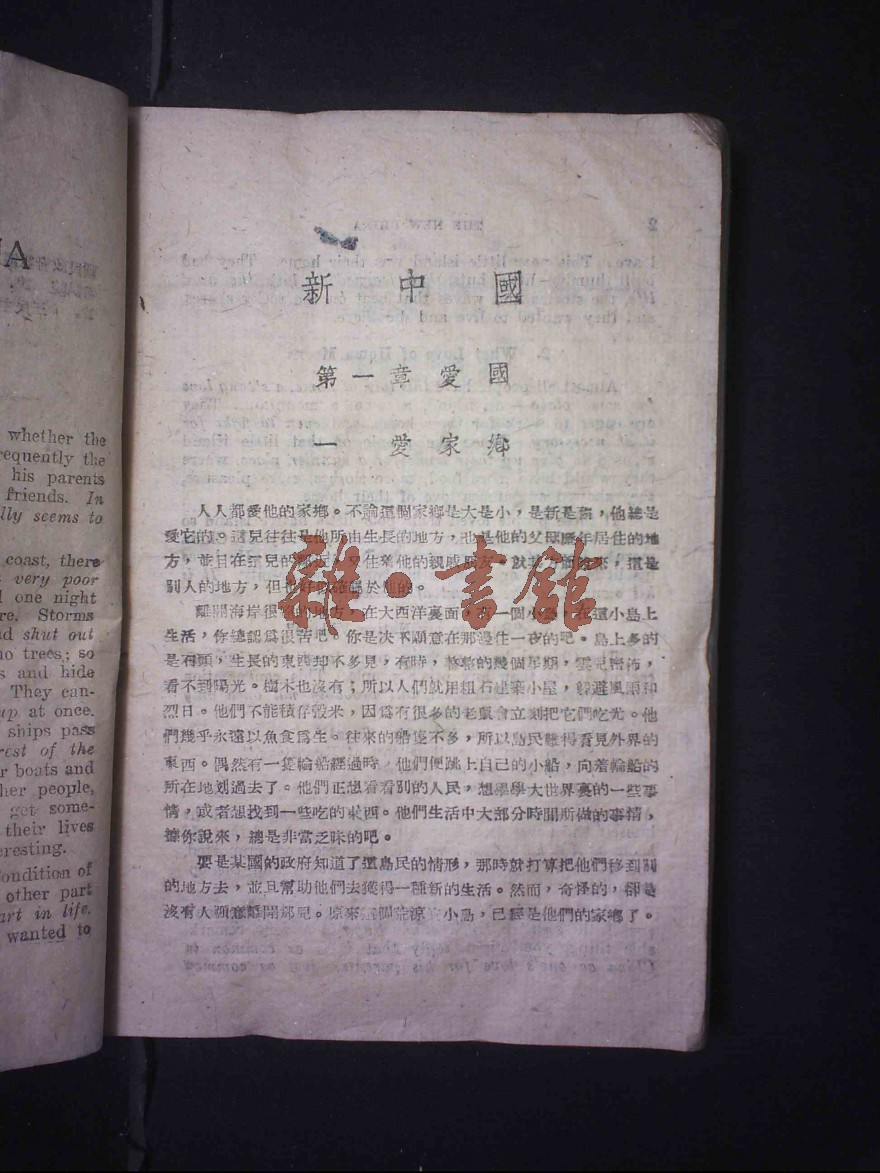 NA
whether the
requently the
his parents
friends. In
lly seems to
coast, there
very poor
one night
re. Storms
nd shut out
no trees; so
s and hide
They can-
up at once.
ships pass
rest of the
r boats and
her people,
get some-
their lives
eresting.
ondition of
other part
art in life.
wanted to
新中國
第一章愛國
一 愛家鄉
人人都愛他的家鄉。不論這個家鄉是大是小,是新是舊,他總是
愛它的。這兒往往是他所由生長的地方,也是他的父母歷年居住的地
方,並且在這兒的鄰近,住着他的親戚朋友。就某方面說來,這是
別人的地方,但也好像是屬於他的。
離開海岸很遠的地方,在大西洋裏面,有一個小島,在這小島上
生活,你總認爲很苦吧,你是决不願意在那邊住一夜的吧。島上多的
是石頭,生長的東西却不多見,有時,整整的幾個星期,雲兒密佈,
看不到陽光。樹木也沒有;所以人們就用粗石建築小屋,躲避風雨和
烈日。他們不能積存穀米,因爲有很多的老鼠會立刻把它們吃光。他
們幾乎永遠以魚食爲生。往來的船隻不多,所以島民難得看見外界的
東西。偶然有一隻輪船經過時,他們便跳上自己的小船,向着輪船的
所在地划過去了。他們正想看看別的人民,想學學大世界裏的一些事
情,或者想找到一些吃的東西。他們生活中大部分時間所做的事情,
據你說來,總是非常乏味的吧。
要是某國的政府知道了這島民的情形,那時就打算把他們移到別
的地方去,並且幫助他們去獲得一種新的生活。然而,奇怪的,卻是
沒有人願意離開那兒。原來這個荒涼的小島,已經是他們的家鄉了。
雜·書館